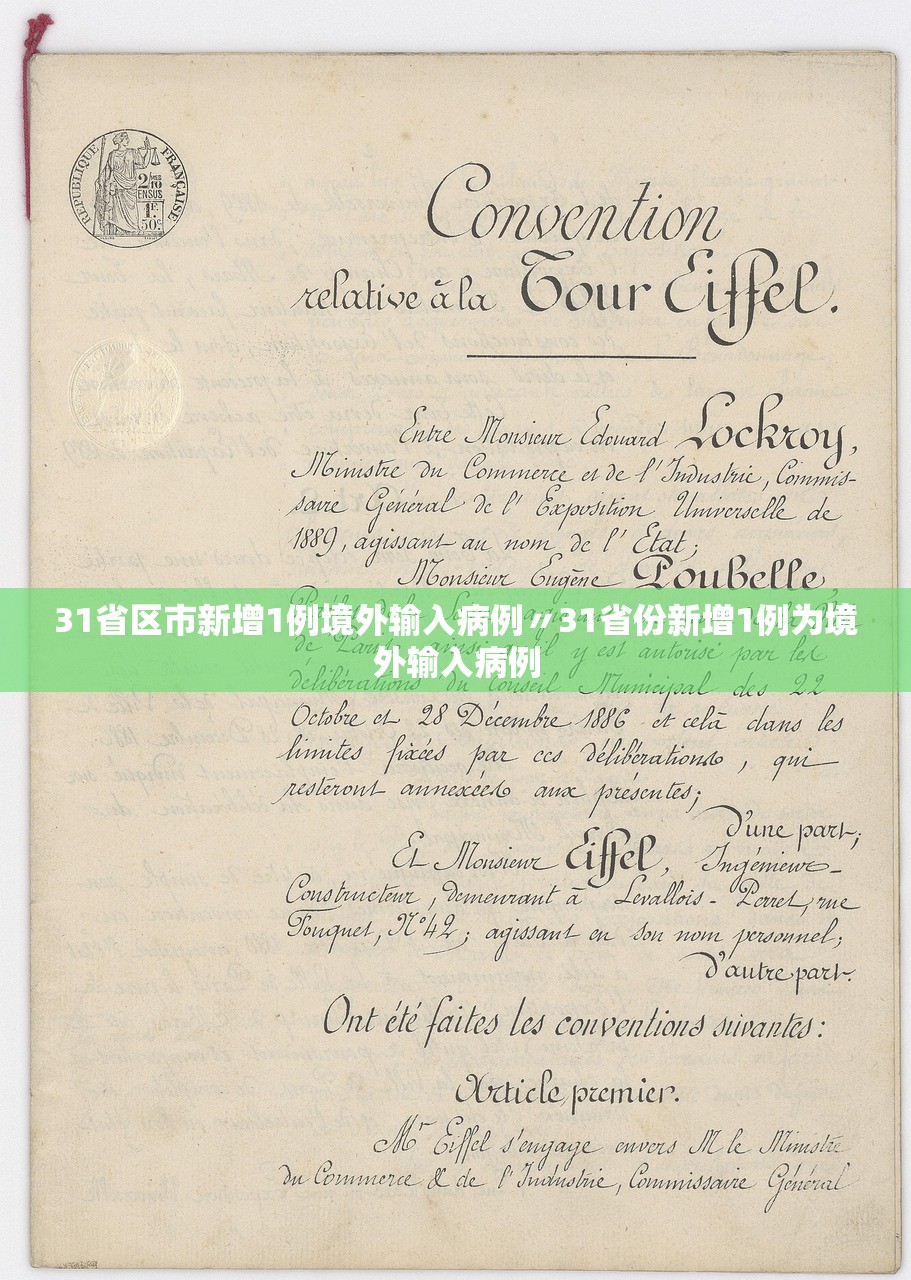 RÉPUBLIQUE FRANÇAISE
2/10
EN SUS
1F.
50c
Convention
relative à la Tour Eiffel.
Entre Monsieur Edouard Lockroy,
Ministre du Commerce et de l'Industrie, Commis-
saire Général de l'Exposition Universelle de
1889, agissant au nom de l'Etat;
Monsieur Eugène Poubelle,
31省区市新增1例境外输入病例〃31省份新增1例为境
外输入病例
de Paris, y est autorisé par les
délibérations du Conseil Municipal des 22
Octobre et 28 Décembre 1886 et celà dans les
limites fixées par ces délibérations, qui
resteront annexées aux présentes;
d'une part;
Et Monsieur Eiffel, Ingénieur-
Constructeur, demeurant à Levallois-Perret, rue
Fouquet, N°42; agissant en son nom personnel;
d'autre part.
Ont été faites les conventions suivantes:
Article premier.
Mr Eiffel s'engage envers M le Ministre
du Commerce & de l'Industrie, Commissaire Général